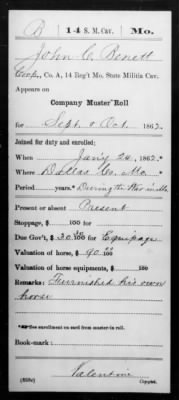 B 14 S. M. Cav. Mo.
John C. Benett
Corp, Co. A, 14 Reg't Mo. State Militia Cav.
Appears on
Company Muster Roll
for Sept & Oct, 1862.
Joined for duty and enrolled:
When Jan'y 20, 1862.*
Where Dallas Co, Mo. *
Period years.* During the War in Mo
Present or absent Present
Stoppage, $ 100 for
Due Gov't, $ 30 100 for Equipage
Valuation of horse, $ 90 100
Valuation of horse equipments, $ 100
Remarks: Furnished his own
horse
*See enrollment on card from muster-in roll.
Book-mark:
Valentine
Copyist.